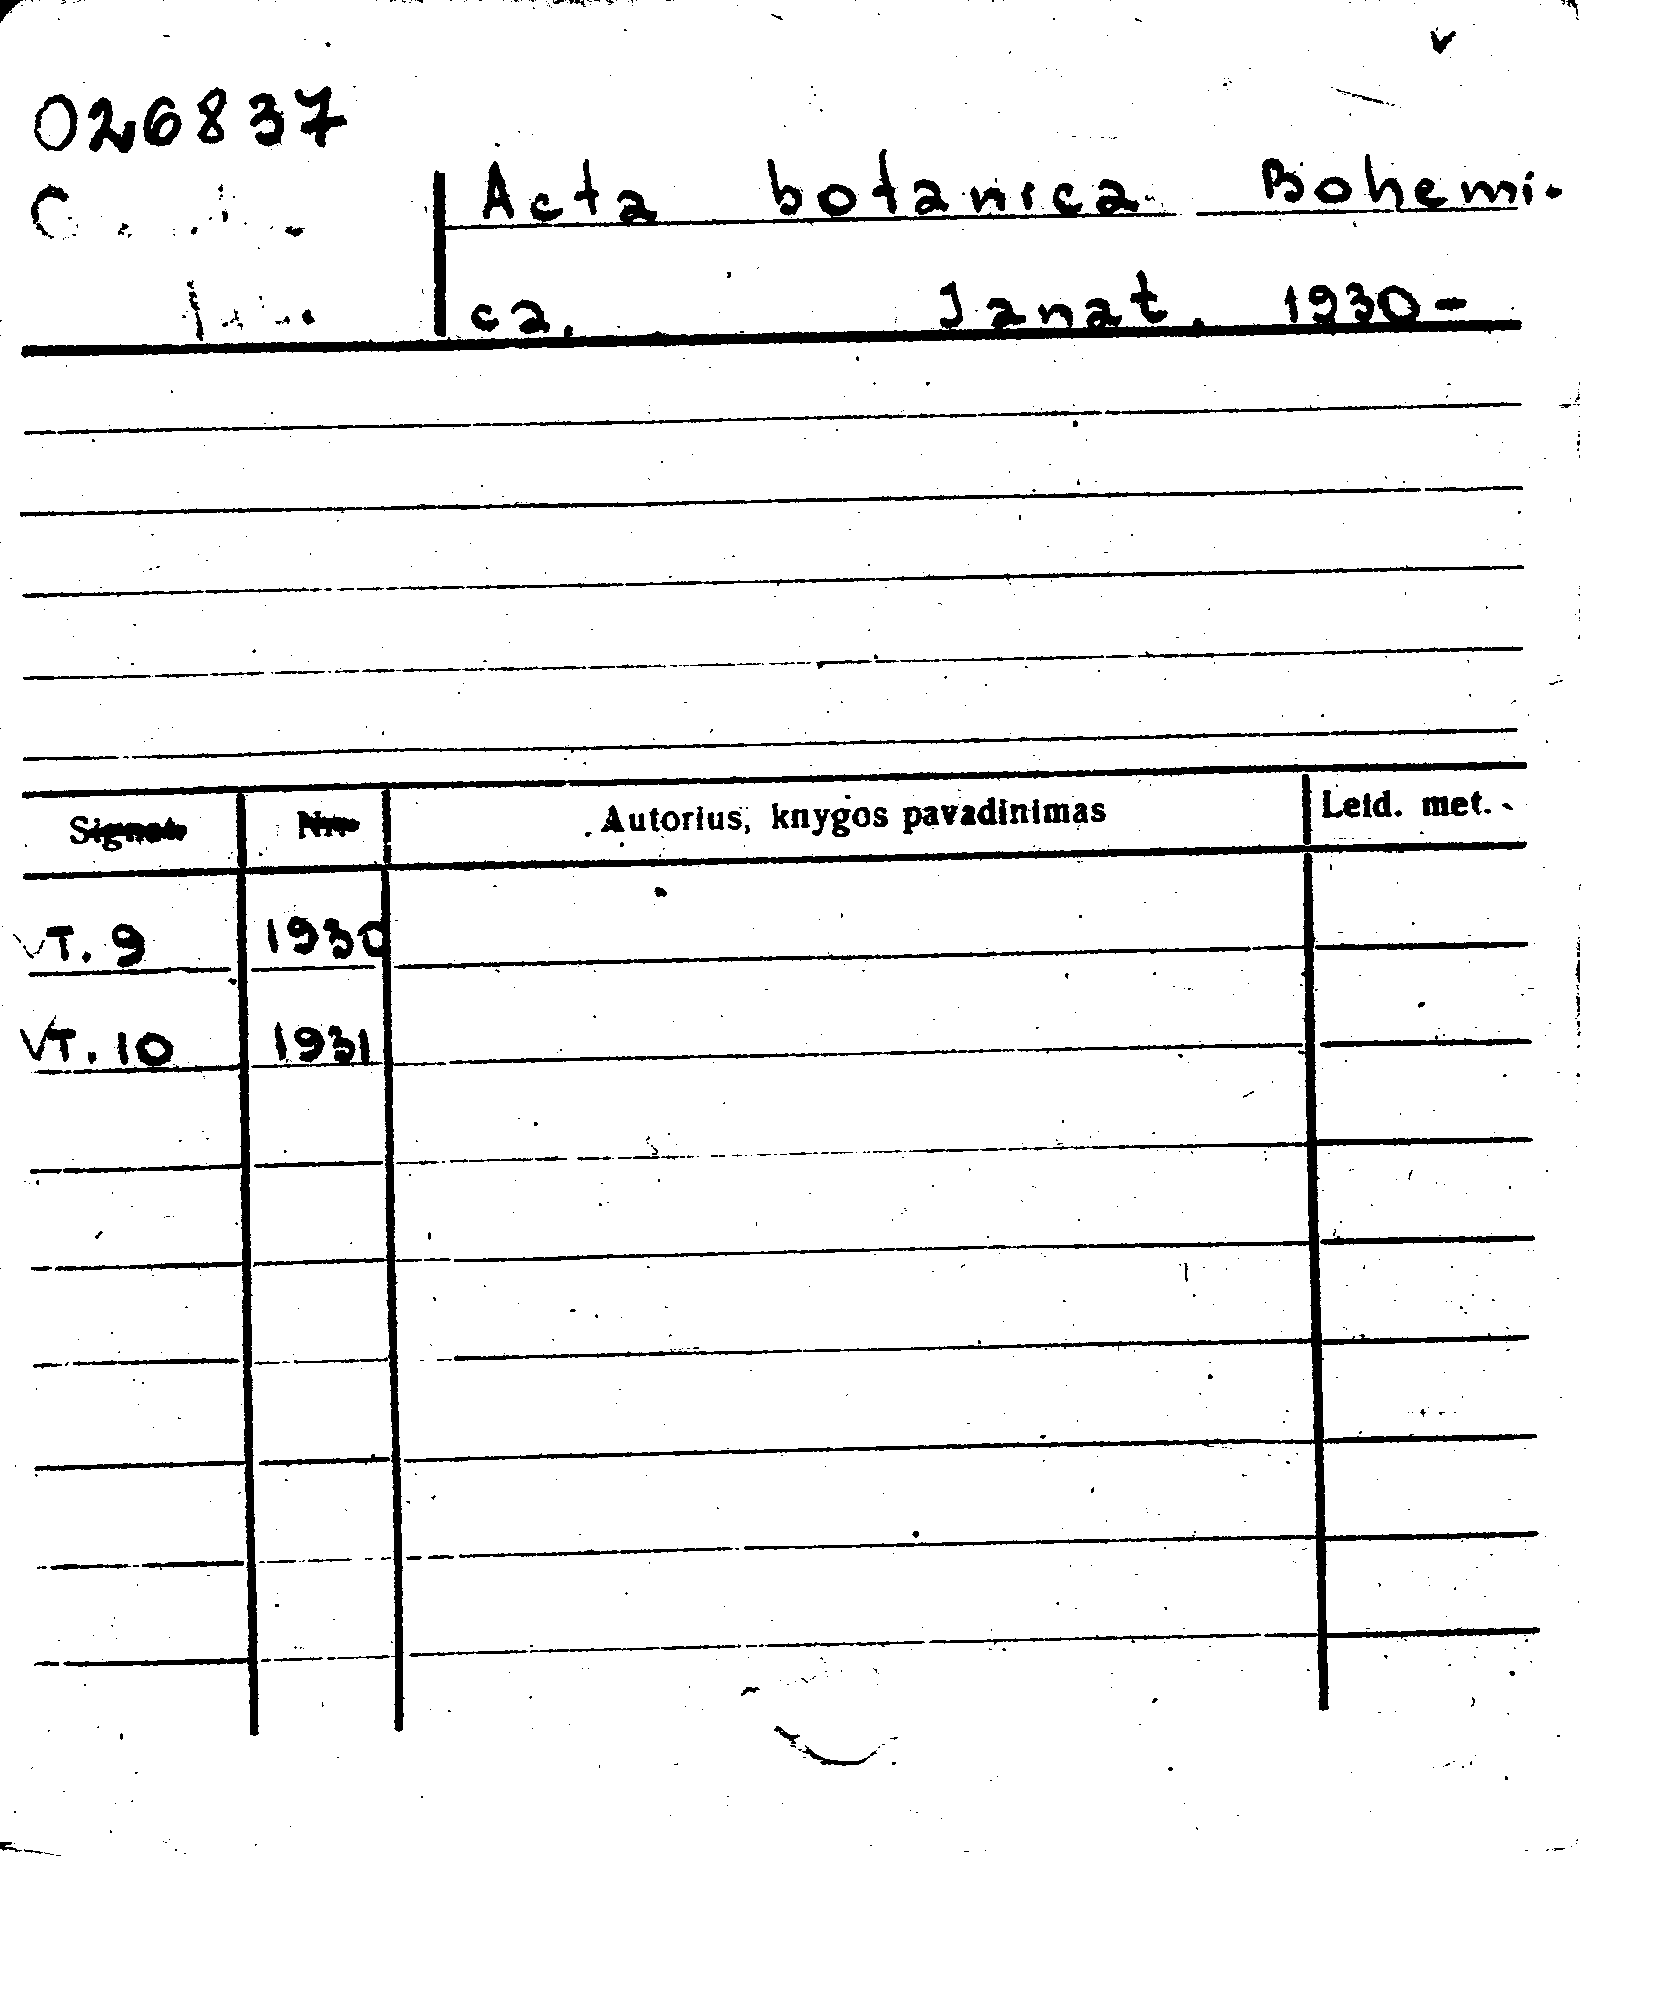 026837
Acta botanica Bohemi-
ca. Janat. 1930-
Signat. Nr. Autorius, knygos pavadinimas Leid. met.
T. 9 1930
T. 10 1931